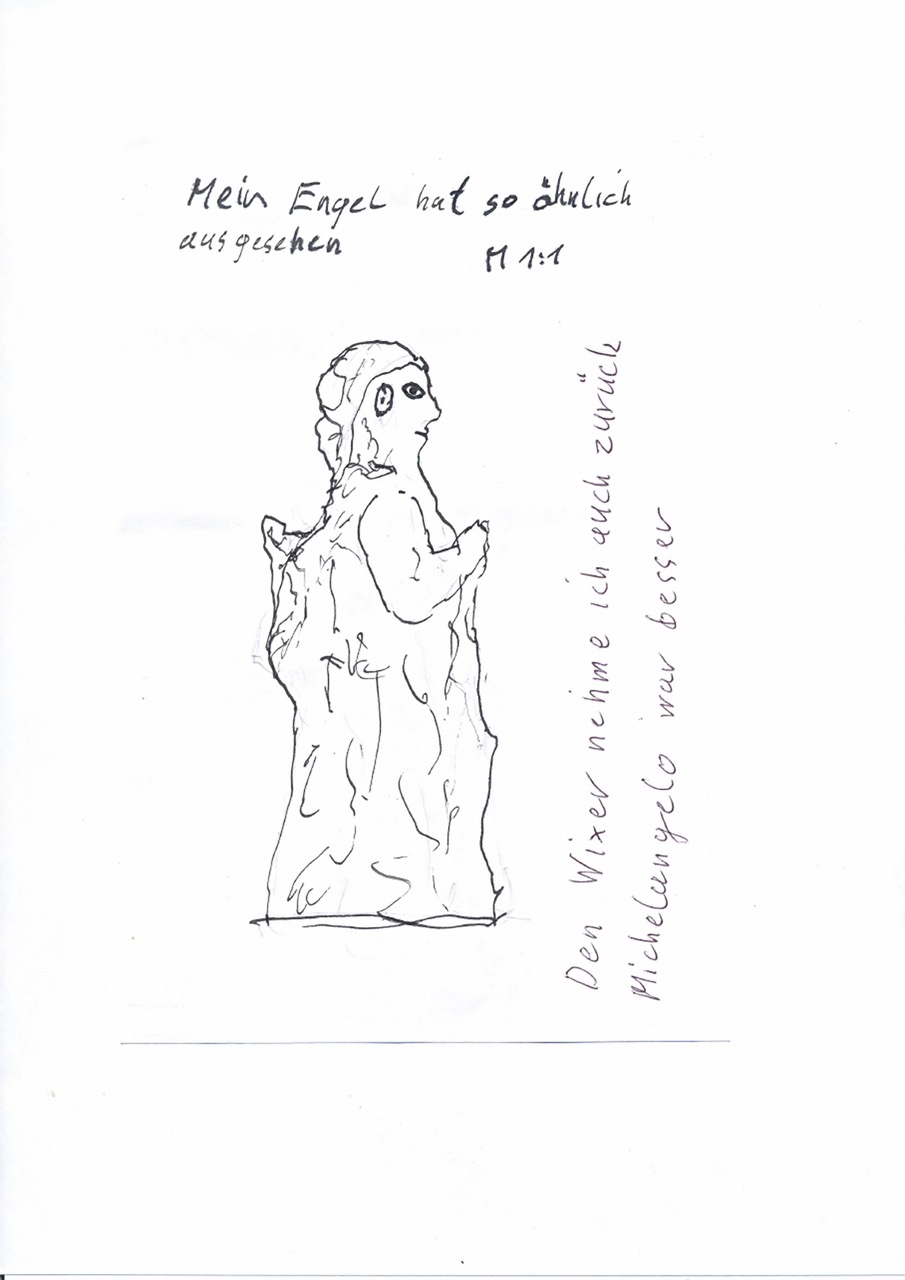 Mein Engel hat so ähnlich
ausgesehen
M 1:1
Den Wixer nehme ich auch zurück
Michelangelo war besser